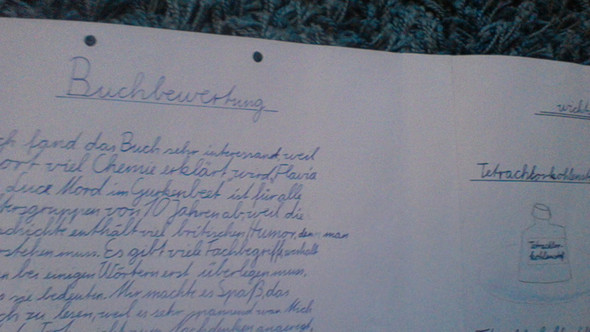 Buchbewertung
ch fand das Buch sehr interessant, weil
dort viel Chemie erklärt wird. Flavia
de Luce Mord im Gurkenbeet ist für alle
tersgruppen von 10 Jahren ab weil die
schichte enthält viel britischen Humor, den man
rstehen muss. Es gibt viele Fachbegriffe, weshalb
an bei einigen Wörtern erst überlegen muss,
s sie bedeuten. Mir machte es Spaß, das
ch zu lesen, weil es sehr spannend war. Mich
Nachdenken anregt,
wicht
Tetrachlorkohlenst
Tetrachlor-
kohlenstoff